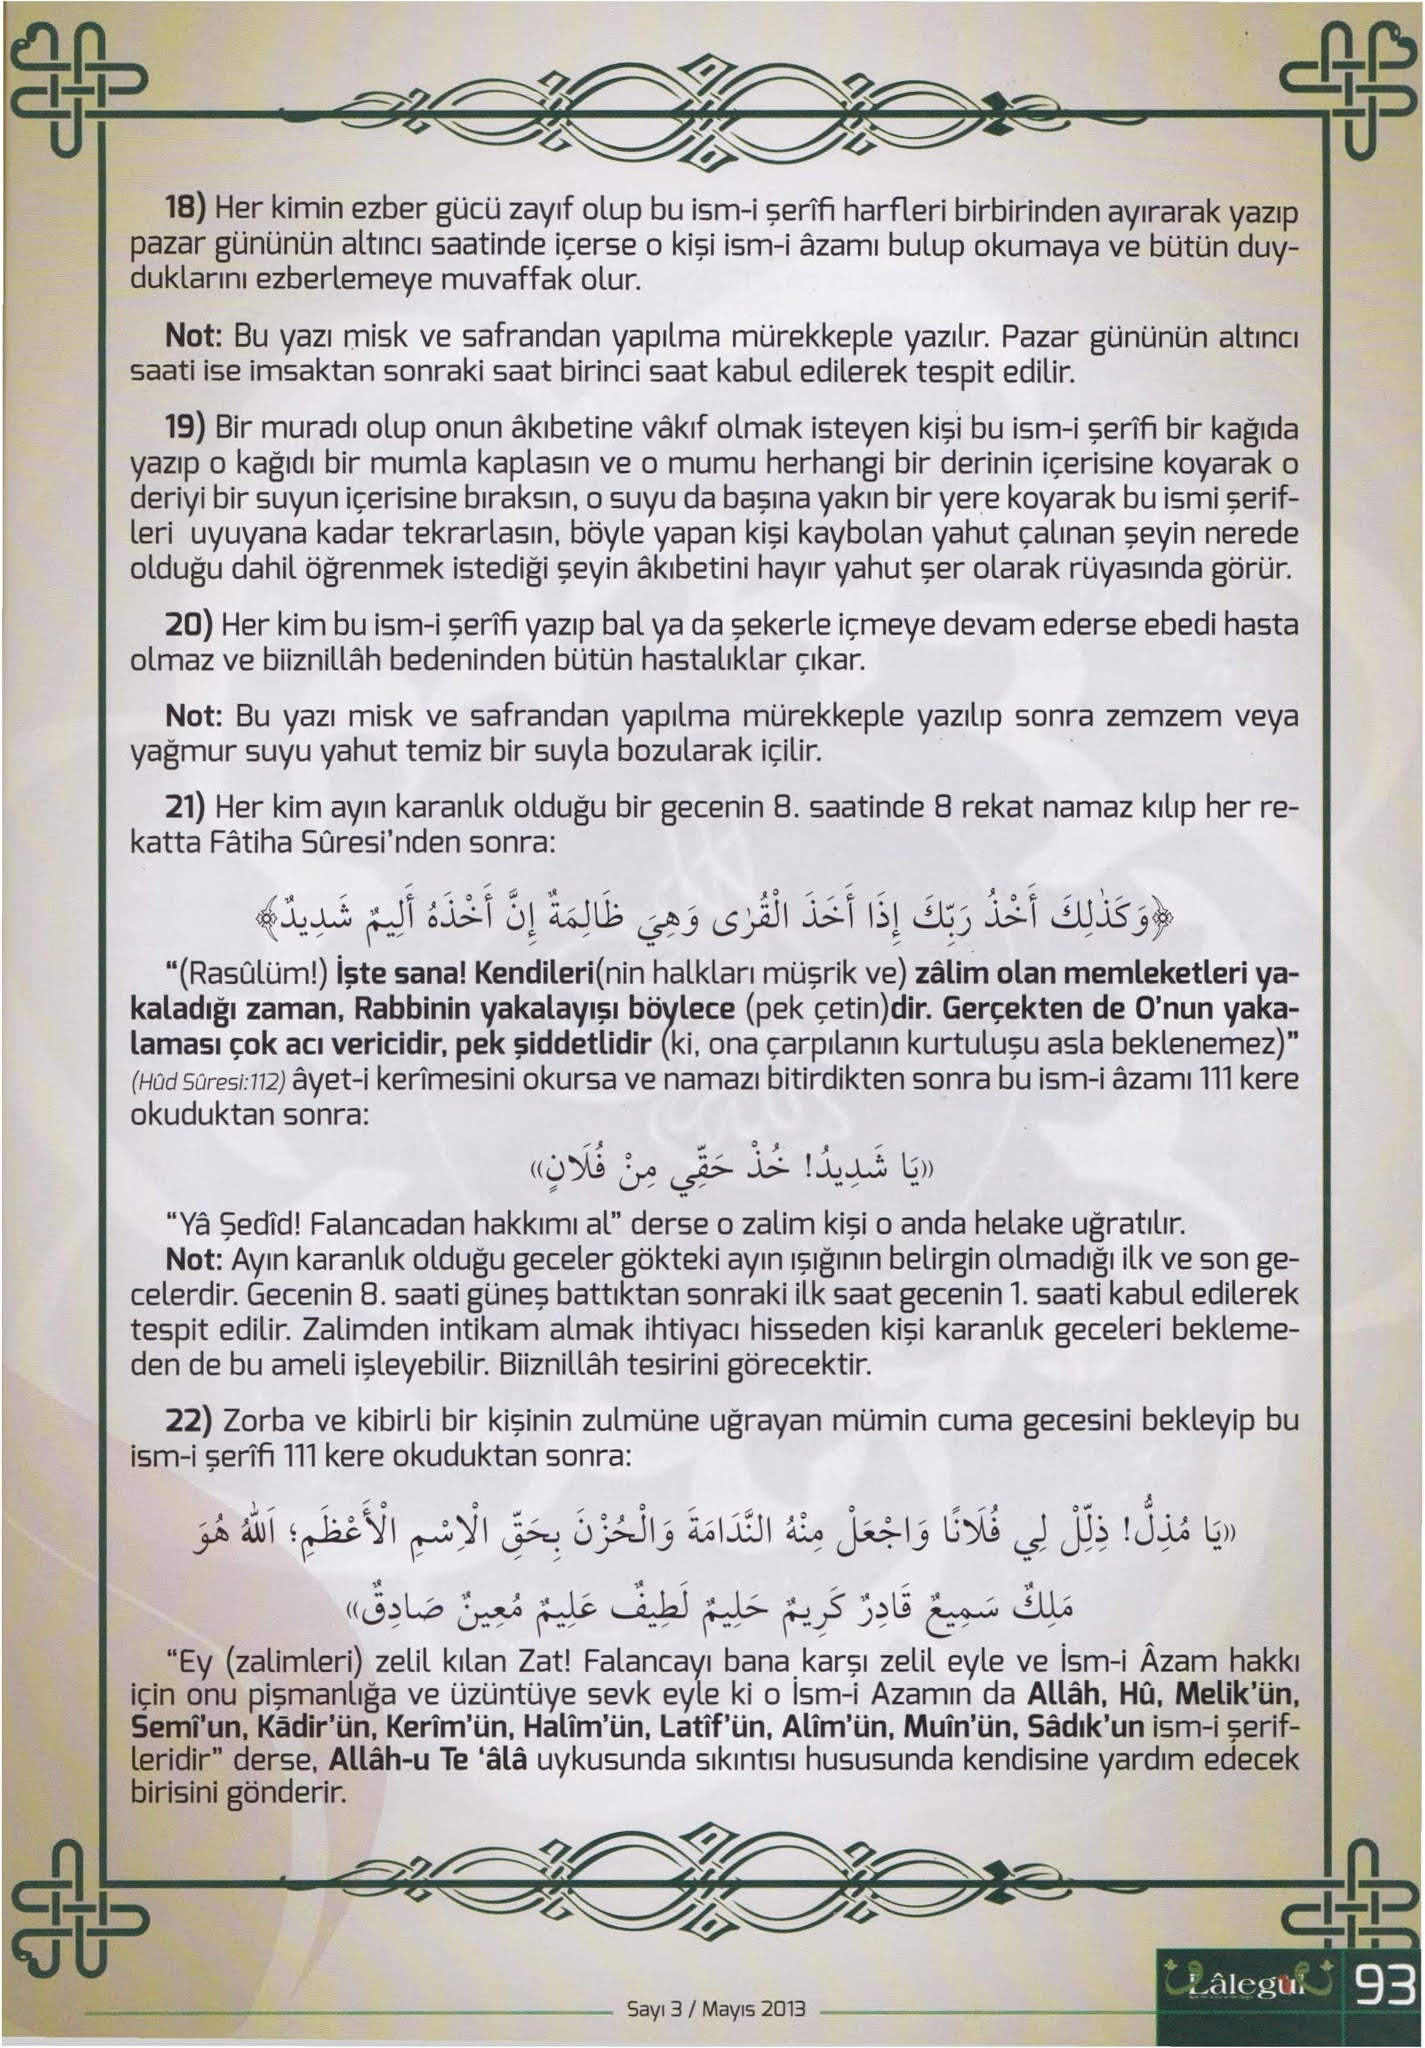 18) Her kimin ezber gücü zayıf olup bu ism-i şerîfi harfleri birbirinden ayırarak yazıp
pazar gününün altıncı saatinde içerse o kişi ism-i âzamı bulup okumaya ve bütün duy-
duklarını ezberlemeye muvaffak olur.
Not: Bu yazı misk ve safrandan yapılma mürekkeple yazılır. Pazar gününün altıncı
saati ise imsaktan sonraki saat birinci saat kabul edilerek tespit edilir.
19) Bir muradı olup onun âkıbetine vâkıf olmak isteyen kişi bu ism-i şerîfi bir kağıda
yazıp o kağıdı bir mumla kaplasın ve o mumu herhangi bir derinin içerisine koyarak o
deriyi bir suyun içerisine bıraksın, o suyu da başına yakın bir yere koyarak bu ismi şerif-
leri uyuyana kadar tekrarlasın, böyle yapan kişi kaybolan yahut çalınan şeyin nerede
olduğu dahil öğrenmek istediği şeyin âkıbetini hayır yahut şer olarak rüyasında görür.
20) Her kim bu ism-i şerîfi yazıp bal ya da şekerle içmeye devam ederse ebedi hasta
olmaz ve biiznillâh bedeninden bütün hastalıklar çıkar.
Not: Bu yazı misk ve safrandan yapılma mürekkeple yazılıp sonra zemzem veya
yağmur suyu yahut temiz bir suyla bozularak içilir.
21) Her kim ayın karanlık olduğu bir gecenin 8. saatinde 8 rekat namaz kılıp her re-
katta Fâtiha Sûresi’nden sonra:
﴿وَكَذٰلِكَ أَخْذُ رَبِّكَ إِذَا أَخَذَ الْقُرٰى وَهِيَ ظَالِمَةٌ إِنَّ أَخْذَهُ أَلِيمٌ شَدِيدٌ﴾
“(Rasûlüm!) İşte sana! Kendileri(nin halkları müşrik ve) zâlim olan memleketleri ya-
kaladığı zaman, Rabbinin yakalayışı böylece (pek çetin)dir. Gerçekten de O’nun yaka-
laması çok acı vericidir, pek şiddetlidir (ki, ona çarpılanın kurtuluşu asla beklenemez)”
(Hûd Sûresi:112) âyet-i kerîmesini okursa ve namazı bitirdikten sonra bu ism-i âzamı 111 kere
okuduktan sonra:
«يَا شَدِيدُ! خُذْ حَقِّي مِنْ فُلَانٍ»
“Yâ Şedîd! Falancadan hakkımı al” derse o zalim kişi o anda helake uğratılır.
Not: Ayın karanlık olduğu geceler gökteki ayın ışığının belirgin olmadığı ilk ve son ge-
celerdir. Gecenin 8. saati güneş battıktan sonraki ilk saat gecenin 1. saati kabul edilerek
tespit edilir. Zalimden intikam almak ihtiyacı hisseden kişi karanlık geceleri bekleme-
den de bu ameli işleyebilir. Biiznillâh tesirini görecektir.
22) Zorba ve kibirli bir kişinin zulmüne uğrayan mümin cuma gecesini bekleyip bu
ism-i şerîfi 111 kere okuduktan sonra:
«يَا مُذِلُّ! ذَلِّلْ لِي فُلَانًا وَاجْعَلْ مِنْهُ النَّدَامَةَ وَالْحُزْنَ بِحَقِّ الْاِسْمِ الْأَعْظَمِ؛ اَللّٰهُ هُوَ
مَلِكٌ سَمِيعٌ قَادِرٌ كَرِيمٌ حَلِيمٌ لَطِيفٌ عَلِيمٌ مُعِينٌ صَادِقٌ»
“Ey (zalimleri) zelil kılan Zat! Falancayı bana karşı zelil eyle ve İsm-i Âzam hakkı
için onu pişmanlığa ve üzüntüye sevk eyle ki o İsm-i Azamın da Allâh, Hû, Melik’ün,
Semî’un, Kādir’ün, Kerîm’ün, Halîm’ün, Latîf’ün, Alîm’ün, Muîn’ün, Sâdık’un ism-i şerif-
leridir” derse, Allâh-u Te ‘âlâ uykusunda sıkıntısı hususunda kendisine yardım edecek
birisini gönderir.
Sayı 3 / Mayıs 2013
Lâlegül
93